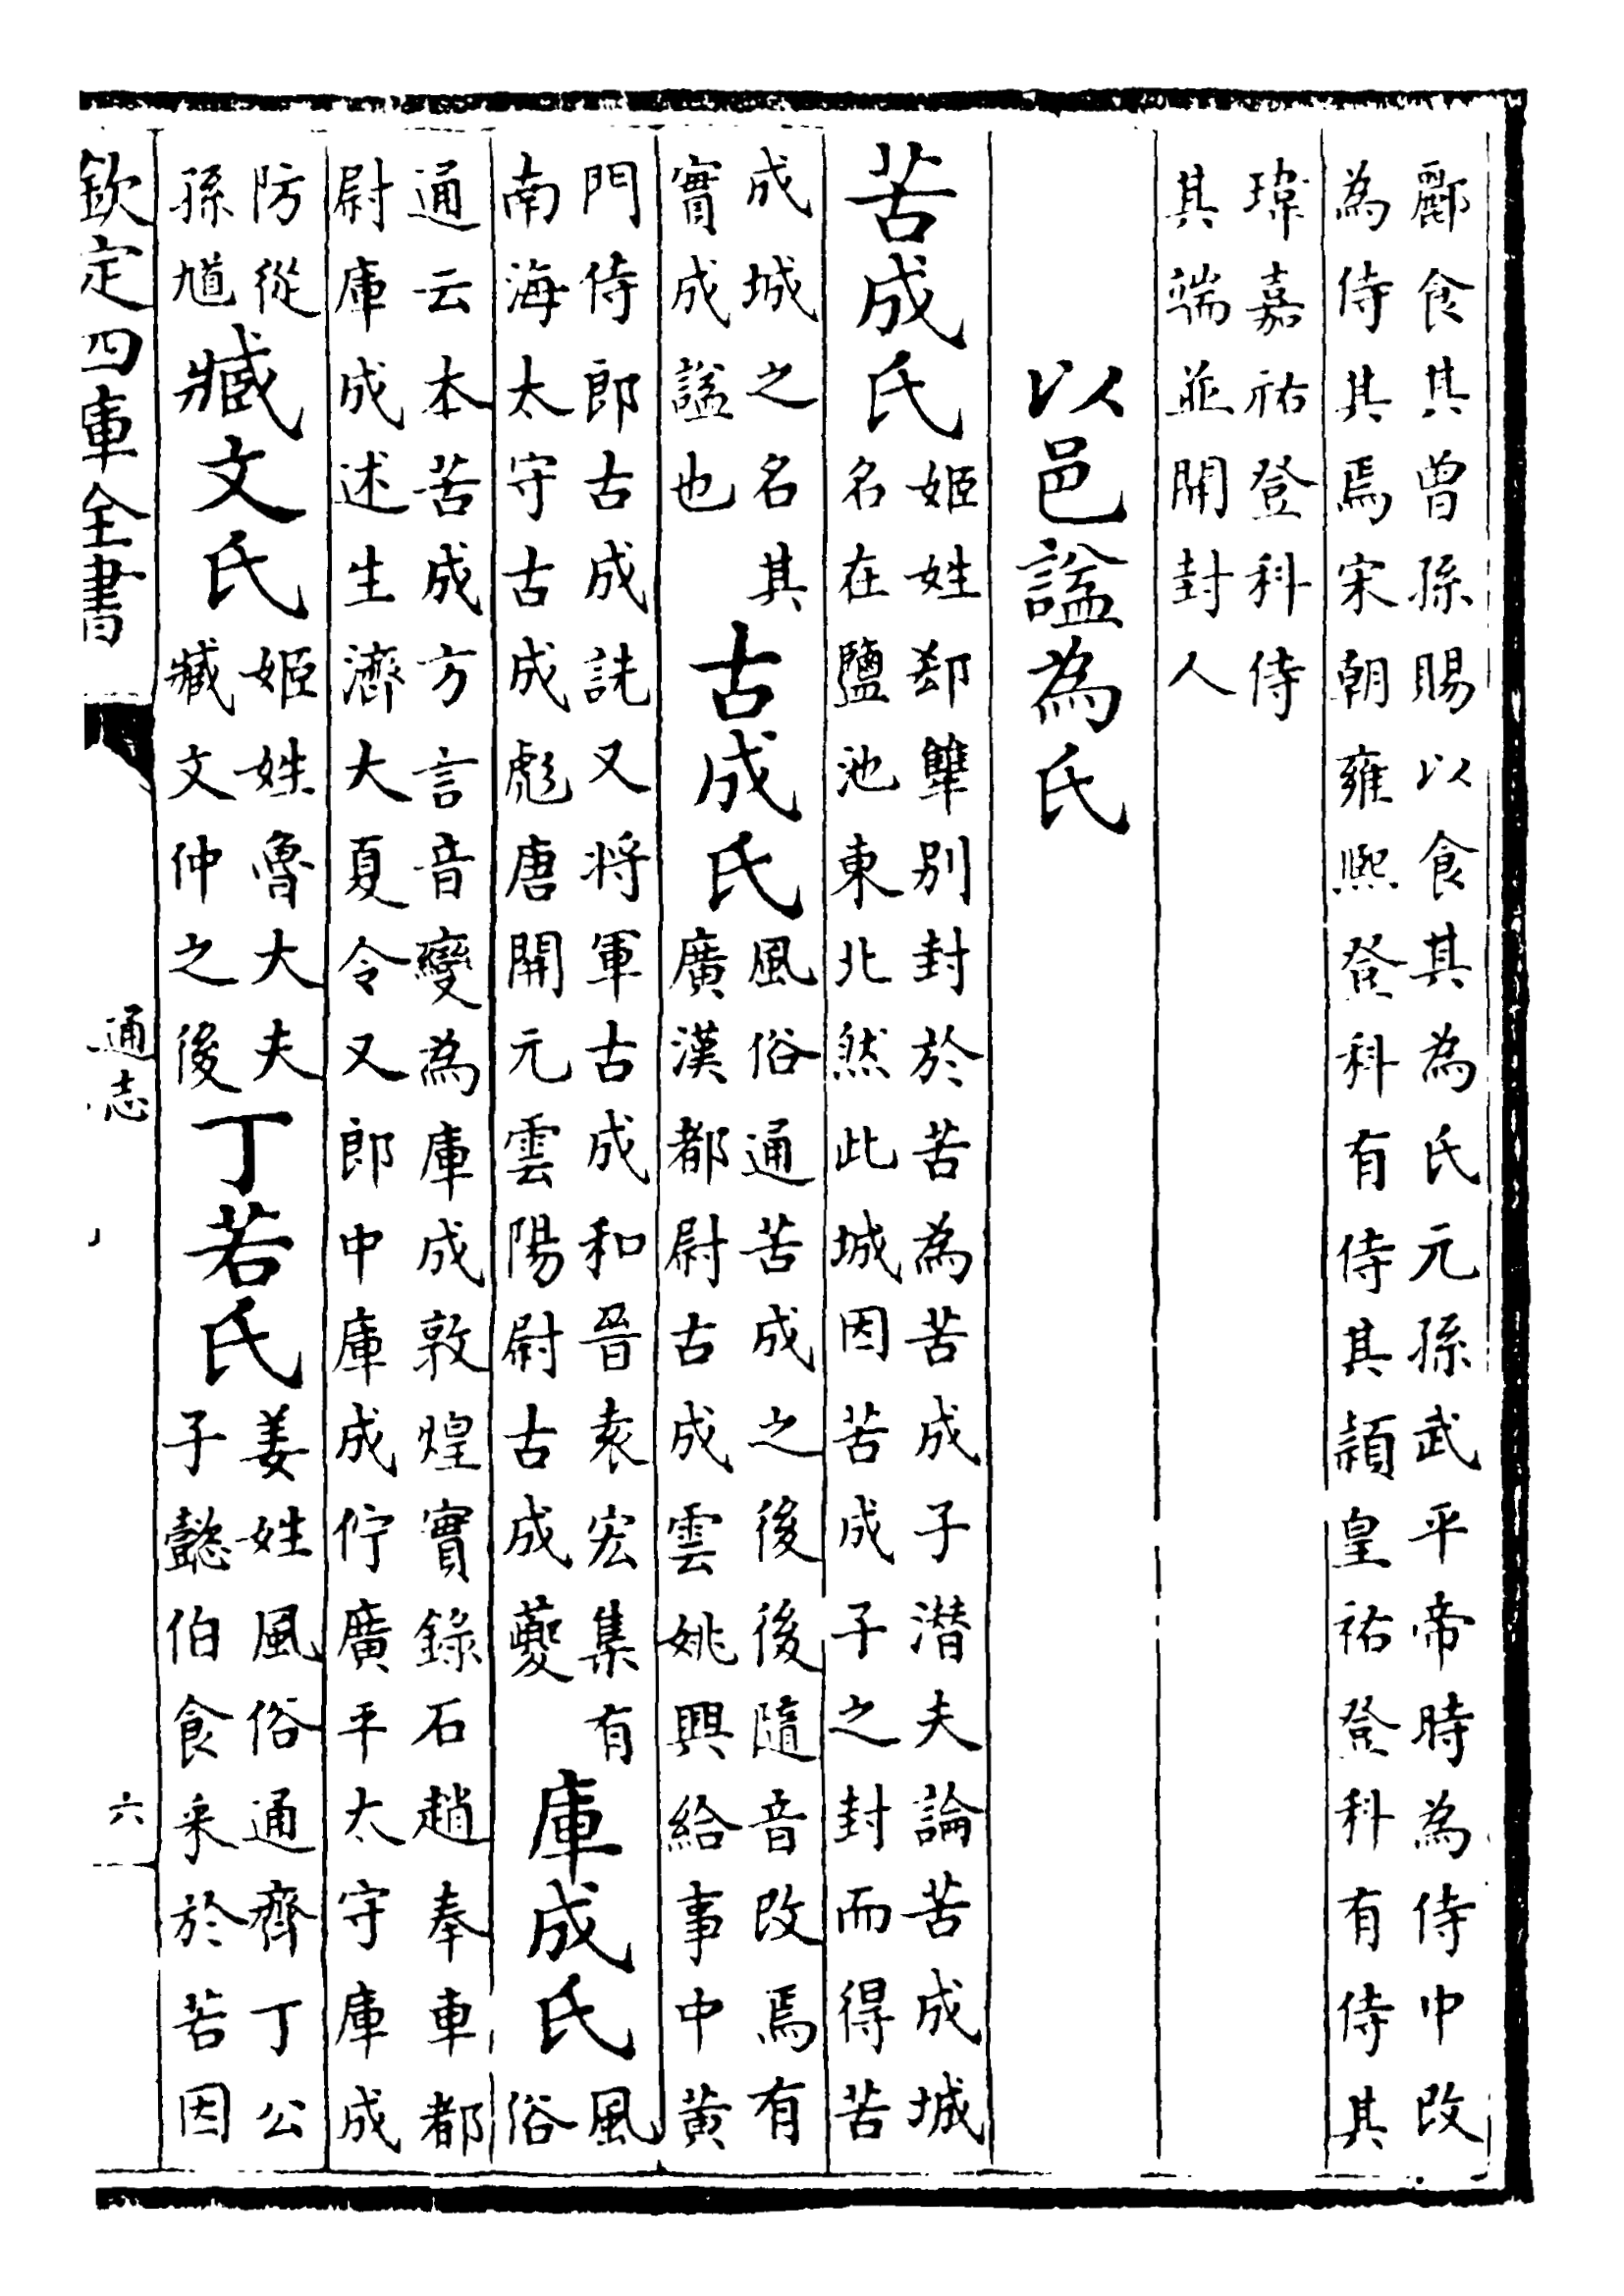 酈食其曾孫賜以食其為氏元孫武平帝時為侍中改
為侍其焉宋朝雍熙登科有侍其頴皇祐登科有侍其
瑋嘉祐登科侍
其端並開封人
以邑諡為氏
苦成氏
姬姓郄犨別封於苦為苦成子潜夫論苦成城
名在鹽池東北然此城因苦成子之封而得苦
成城之名其
實成諡也
古成氏
風俗通苦成之後後隨音改焉有
廣漢都尉古成雲姚興給事中黄
門侍郎古成詵又将軍古成和晉袁宏集有
南海太守古成彪唐開元雲陽尉古成虁
庫成氏
風
俗
通云本苦成方言音變為庫成敦煌實錄石趙奉車都
尉庫成述生濟大夏令又郎中庫成佇廣平太守庫成
防從
孫馗
臧文氏
姬姓魯大夫
臧文仲之後
丁若氏
姜姓風俗通齊丁公
子懿伯食采於若因
欽定四庫全書
通志
六